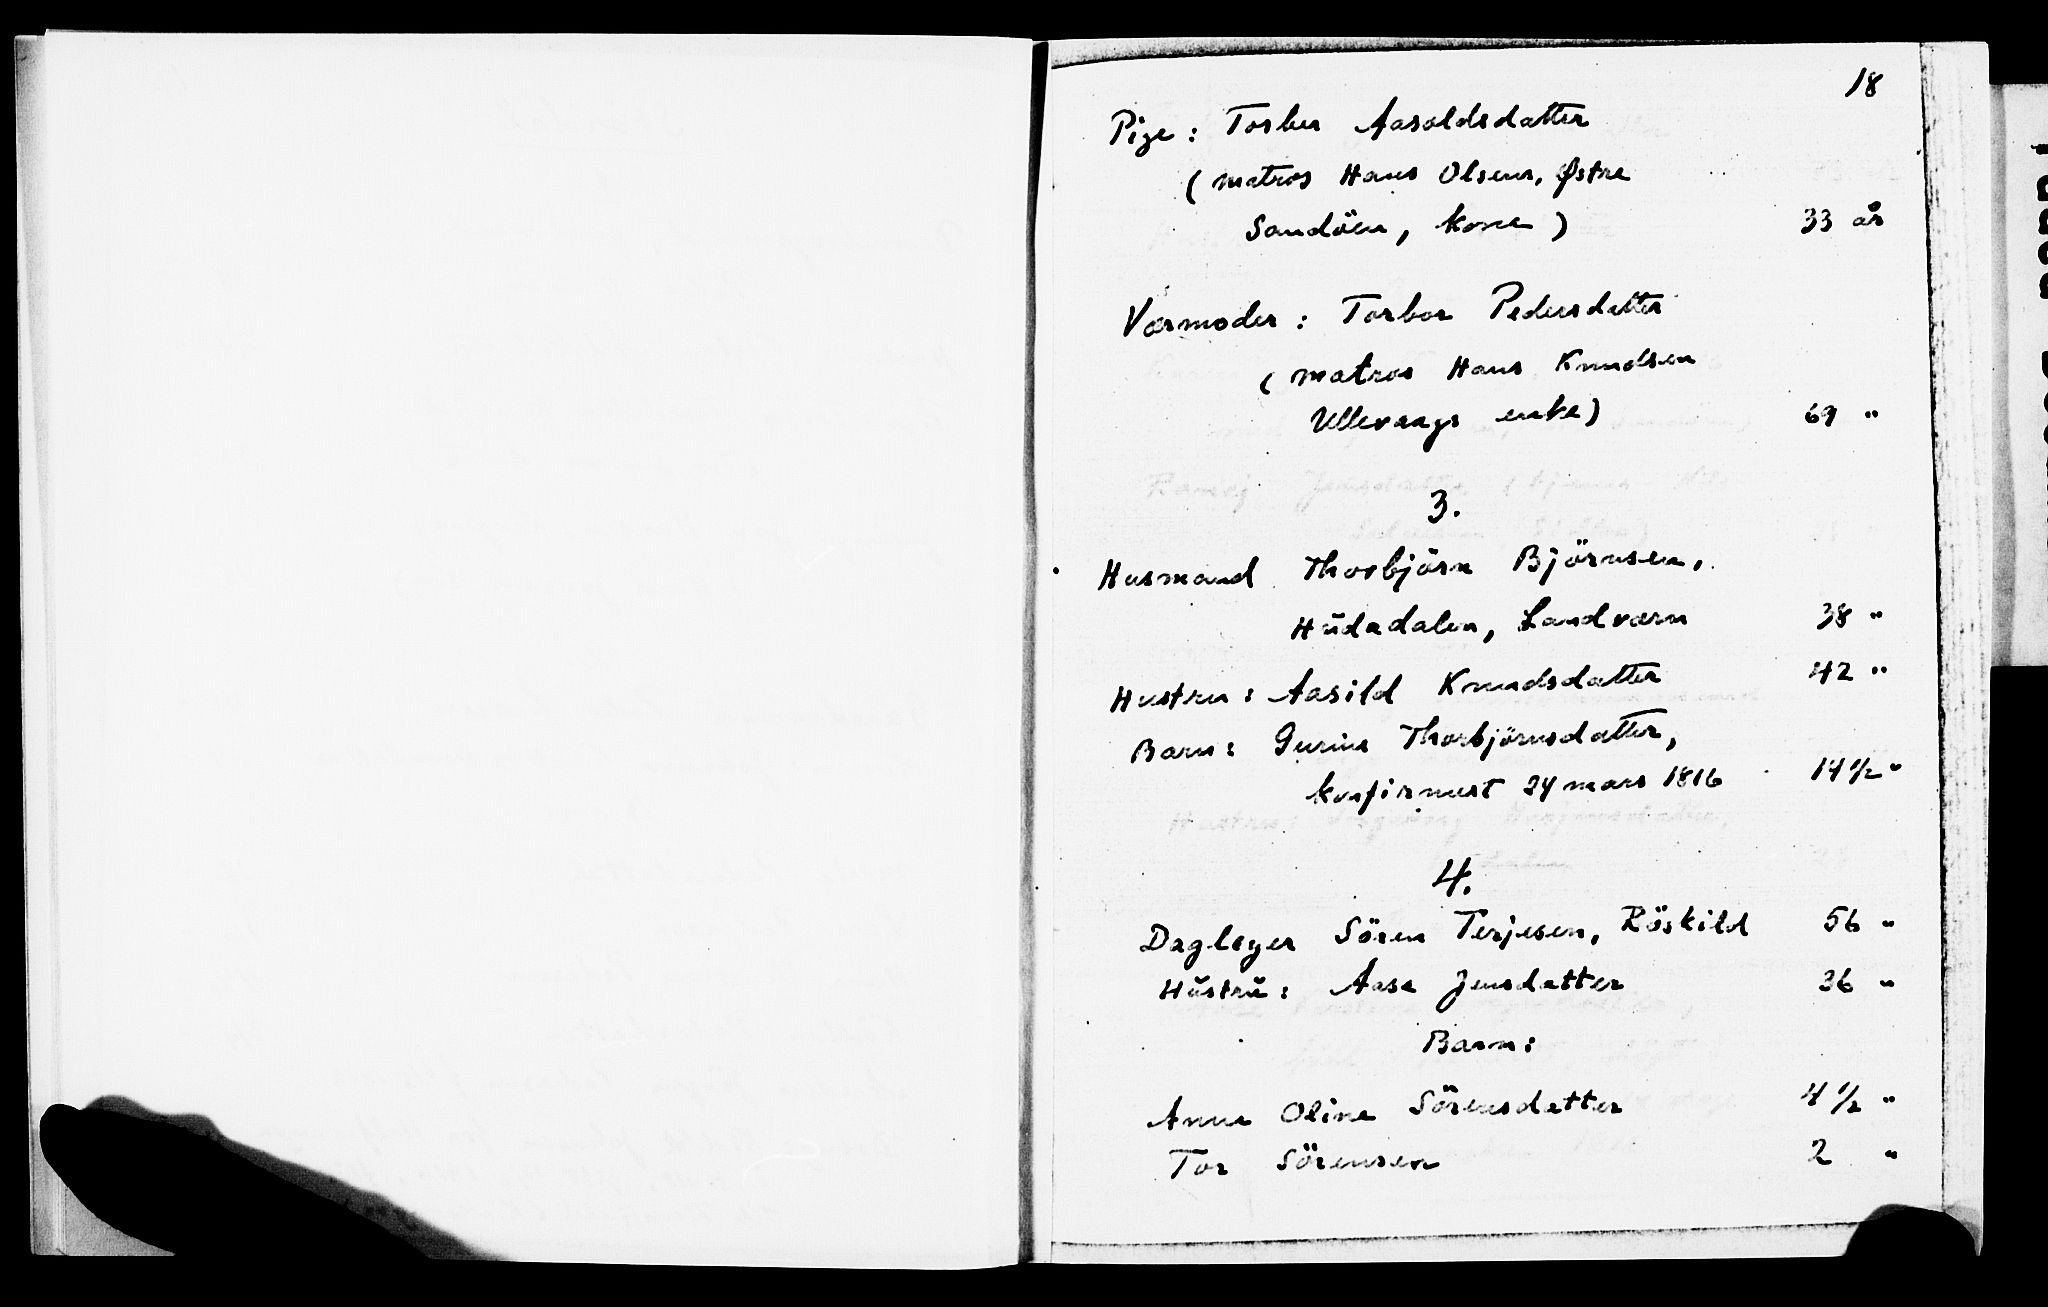 18
Pige: Torber Aasoldsdatter
(matros Hans Olsens, Østre
Sandöen, kone) 33 år
Værmoder: Torbor Pedersdatter
(matros Hans Knudsen
Ullevaags enke) 69 "
3.
Husmand Thorbjörn Björnsen,
Hüdadalen, Landværn 38 "
Hustru: Aasild Knudsdatter 42 "
Barn: Gurine Thorbjörnsdatter,
konfirmert 24 mars 1816 14 1/2 "
4.
Dagleyer Sören Terjesen, Röskild 56 "
Hüstrü: Aase Jensdatter 36 "
Barn:
Anne Oline Sörensdatter 4 1/2 "
Tor Sörensen 2 "